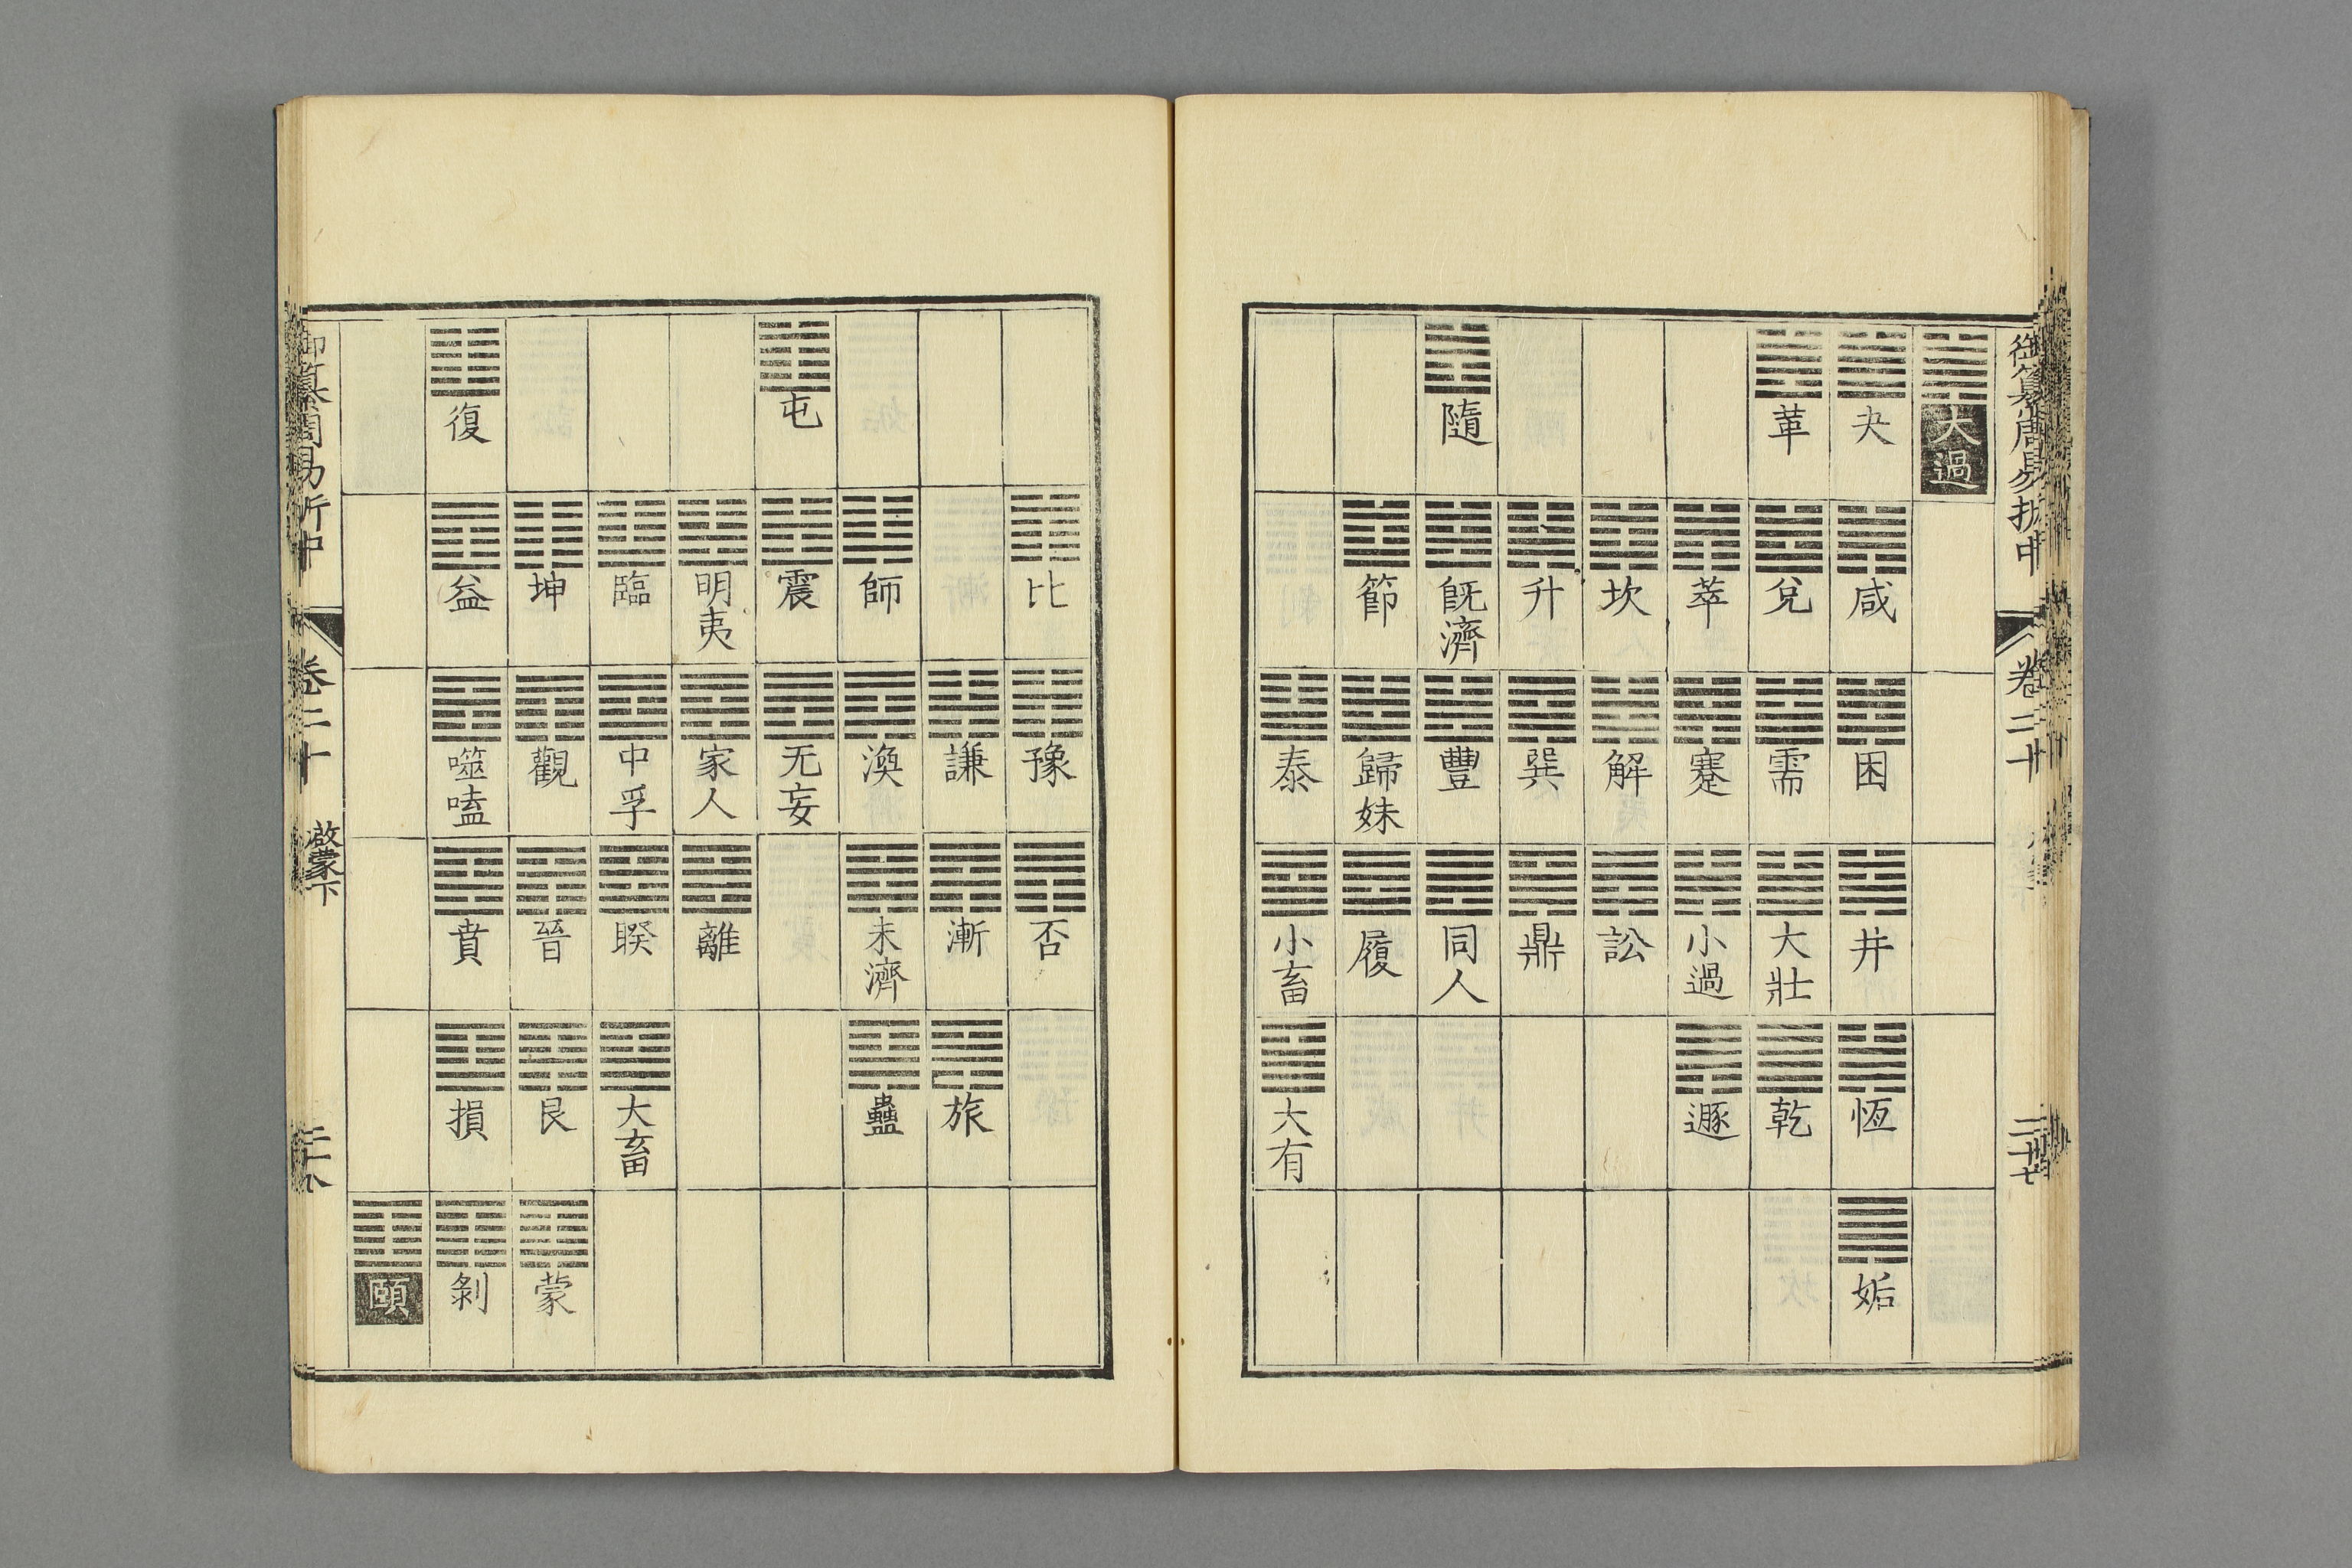 御纂周易折中
卷二十
二十七
大過
夬
咸
困
井
恆
姤
革
兌
需
大壯
乾
萃
蹇
小過
遯
坎
解
訟
升
巽
鼎
隨
旣濟
豐
同人
節
歸妹
履
泰
小畜
大有
比
豫
否
謙
漸
旅
師
渙
未濟
蠱
屯
震
无妄
明夷
家人
離
臨
中孚
睽
大畜
坤
觀
晉
艮
蒙
復
益
噬嗑
賁
損
剝
頤
御纂周易折中
卷二十
啟蒙下
二十八